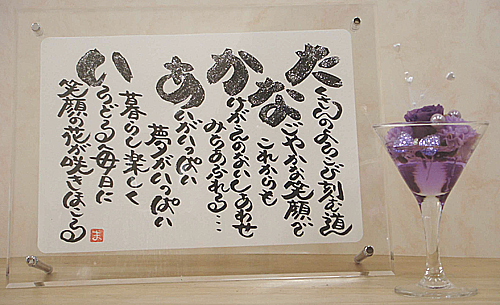 たくさんのよろこび刻む道
なごやかな笑顔で
これからも
かけがえのないしあわせ
みちあふれる…
あいがいっぱい
夢がいっぱい
暮らし楽しく
いろどる毎日に
笑顔の花が咲きほこる
ま